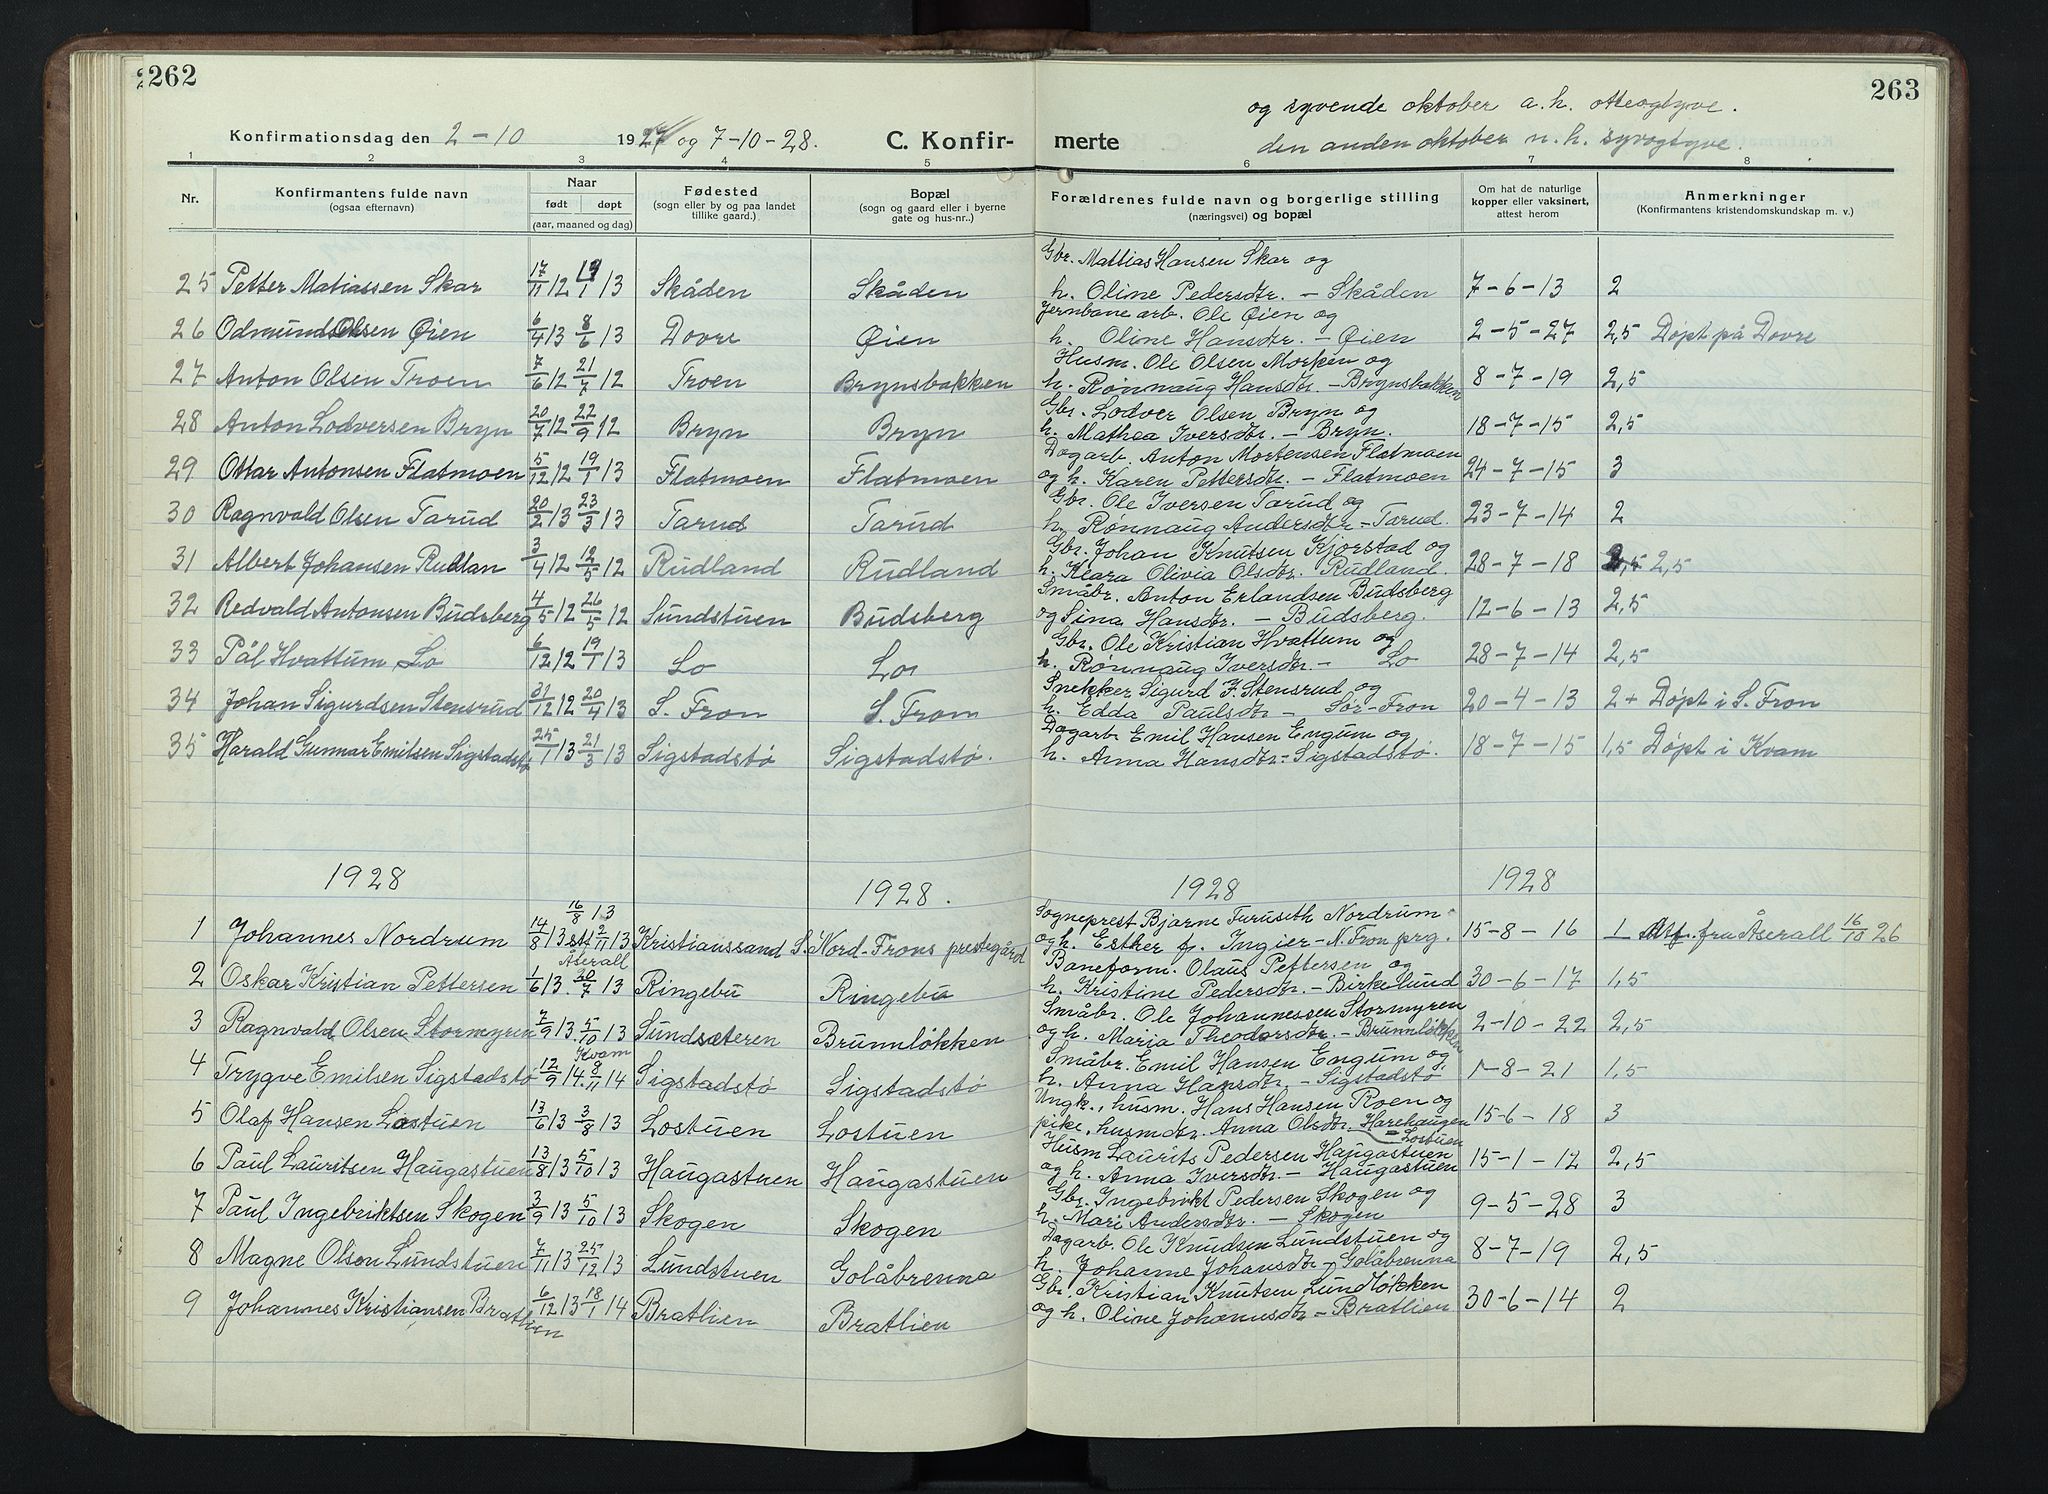 262
263
og syvende oktober a. h. otteogtyve.
Konfirmationsdag den 2-10 1927 og 7-10-28.
C. Konfirmerte
den anden oktober n. h. syvogtyve.
1 2 3 4 5 6 7 8
Nr. Konfirmantens fulde navn (ogsaa efternavn) Naar født døpt (aar, maaned og dag) Fødested (sogn eller by og paa landet tillike gaard.) Bopæl (sogn og gaard eller i byerne gate og hus-nr..) Forældrenes fulde navn og borgerlige stilling (næringsvei) og bopæl Om hat de naturlige kopper eller vaksinert, attest herom Anmerkninger (Konfirmantens kristendomskundskap m. v.)
Gbr. Mattias Hansen Skar og
25 Petter Matiassen Skar 17/11 12 19/1 13 Skåden Skåden h. Oline Pedersdtr. – Skåden 7-6-13 2
Jernbanearb. Ole Øien og
26 Odmund Olsen Øien 6/4 13 8/6 13 Dovre Øien h. Oline Hansdtr. – Øien 2-5-27 2,5 Døpt på Dovre
Husm. Ole Olsen Morken og
27 Anton Olsen Troen 7/6 12 21/7 12 Troen Brynsbakken h. Rønnaug Hansdtr. – Brynsbakken 8-7-19 2,5
Gbr. Lodver Olsen Bryn og
28 Anton Lodversen Bryn 20/7 12 22/9 12 Bryn Bryn h. Mathea Iversdtr. – Bryn. 18-7-15 2,5
Dagarb. Anton Mortensen Flatmoen
29 Ottar Antonsen Flatmoen 5/12 12 19/1 13 Flatmoen Flatmoen og h. Karen Pettersdtr. – Flatmoen 24-7-15 3
Gbr. Ole Iversen Tarud og
30 Ragnvald Olsen Tarud 20/2 13 23/3 13 Tarud Tarud h. Rønnaug Andersdtr – Tarud. 23-7-14 2
Gbr. Johan Knutsen Kjorstad og
31 Albert Johansen Rudlan 3/4 12 12/5 12 Rudland Rudland h. Klara Olivia Olsdtr. Rudland. 28-7-18 2,5
Småbr. Anton Erlandsen Budsberg
32 Redvald Antonsen Budsberg 4/5 12 26/5 12 Sundstuen Budsberg og Sina Hansdtr. – Budsberg. 12-6-13 2,5
Gbr. Ole Kristian Hvattum og
33 Pål Hvattum Lo 6/12 12 19/1 13 Lo Lo h. Rønnaug Iversdtr. – Lo 28-7-14 2,5
Snekker Sigurd J. Stensrud og
34 Johan Sigurdsen Stensrud 31/12 12 20/4 13 S. Fron S. Fron h. Edda Paulsdtr – Sør-Fron 20-4-13 2+ Døpt i S. Fron
Dagarb. Emil Hansen Engum og
35 Harald Gunnar Emilsen Sigstadstø 25/1 13 21/3 13 Sigstadstø Sigstadstø. h. Anna Hansdtr – Sigstadstø. 18-7-15 1,5 Døpt i Kvam
1928 1928. 1928 1928
16/8 13 Sogneprest Bjarne Furuseth Nordrum
1 Johannes Nordrum 14/8 13 stf. 2/11 13 Åserall Kristianssand S. Nord-Frons prestegård og h. Esther f. Ingier – N. Fron prg. 15-8-16 1 Att. fra Åserall 16/10 26
Baneform. Olaus Pettersen og
2 Oskar Kristian Pettersen 1/6 13. 20/7 13 Ringebu Ringebu h. Kristine Pedersdtr. – Birkelund 30-6-17 1,5
Småbr. Ole Johannessen Stormyren
3 Ragnvald Olsen Stormyren 7/9 13. 5/10 13 Sundsæteren Brunnløkken og h. Marja Theodorsdtr. – Brunnløkken 2-10-22 2,5
Småbr. Emil Hansen Engum og
4 Trygve Emilsen Sigstadstø 12/9 14. Kvam 8/11 14 Sigstadstø Sigstadstø h. Anna Hansdtr. – Sigstadstø 1-8-21 1,5
Ungk., husm. Hans Hansen Roen og
5 Olaf Hansen Lostuen 13/6 13 3/8 13 Lostuen Lostuen pike, husmdtr. Anna Olsdtr. Harehaugen – Lostuen 15-6-18 3
Husm Laurits Pedersen Haugastuen
6 Paul Lauritsen Haugastuen 13/8 13 5/10 13 Haugastuen Haugastuen og h. Anna Iversdtr. – Haugastuen 15-1-12 2,5
Gbr. Ingebrikt Pedersen Skogen og
7 Paul Ingebriktsen Skogen 3/9 13 5/10 13 Skogen Skogen h. Mari Andersdtr. – Skogen 9-5-28 3
Dagarb. Ole Knudsen Lundstuen og
8 Magne Olsen Lundstuen 7/11 13 25/12 13 Lundstuen Golåbrenna h. Johanne Johansdtr – Golåbrenna 8-7-19 2,5
Gbr. Kristian Knutsen Lundløkken
9 Johannes Kristiansen Bratlien 6/12 13 18/1 14 Bratlien Bratlien og h. Oline Johannsdtr – Bratlien 30-6-14 2